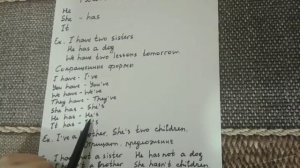 He
She - has
It
Ex. I have two sisters
He has a dog
We have two lessons tomorrow
Сокращенные формы
I have - I've
You have - You've
We have - We've
They have - They've
She has - She's
He has - He's
It has -
Ex. I've a brother. She's two children.
предложение
I haven't a sister He hasn't a dog
a brother. She hasn't children